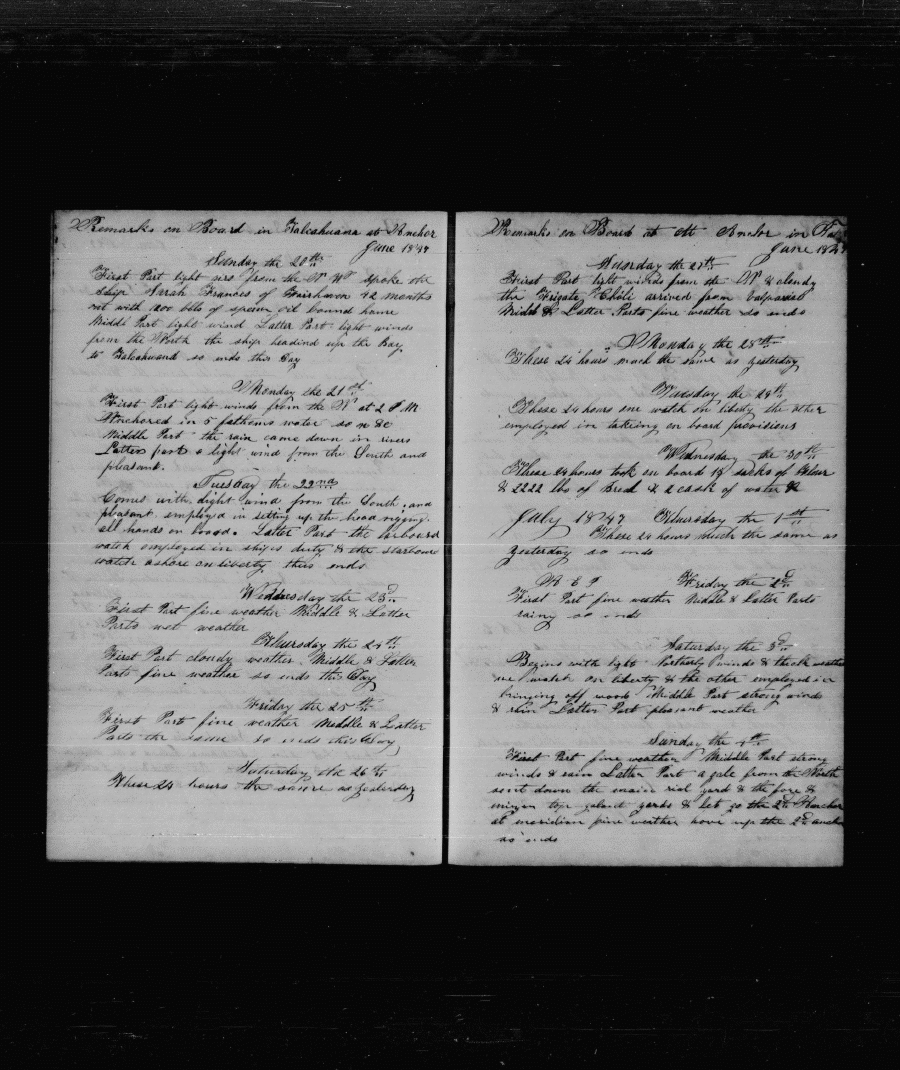 Remarks on Board in Talcahuana at Ancher
June 1847
Sunday the 20th
First Part light airs from the N W spoke the
Ship Sarah Frances of Fairhaven 42 months
out with 200 bbls of sperm oil bound home
Middl Part light wind Latter Part light winds
from the North the ship heading up the Bay
to Talcahuana so ends this Day
Monday the 21st
First Part light winds from the N at 2 P M
Anchored in 5 fathoms water so n &c
Middle Part the rain came down in rivers
Latter part a light wind from the South and
pleasant.
Tuesday the 22nd
Comes with light wind from the South and
pleasant employed in setting up the head rigging.
all hands on board. Latter Part the larboard
watch employed in ships duty & the starboard
watch ashore on liberty thus ends
Wednesday the 23d
First Part fine weather Middle & Latter
Parts wet weather
Thursday the 24th
First Part cloudy weather. Middle & Latter
Parts fine weather so ends this Day
Friday the 25th
First Part fine weather Middle & Latter
Parts the same so ends this Day
Saturday the 26th
These 24 hours the same as yesterday
Remarks on Board at Anchor in
June 1847
the 27th
First Part light winds from the N & cloudy
the Frigate Chili arrived from Valparaiso
Middl & Latter Parts fine weather so ends
Monday the 28th
These 24 hours much the same as yesterday
Tuesday the 29th
These 24 hours one watch on liberty the other
employed in takeing on board provisions
Wednesday the 30th
These 24 hours took on board 15 sacks of flour
& 2222 lbs of Bred & 2 cask of water
July 1847 Thursday the 1st
These 24 hours much the same as
yesterday so ends
Friday the 2d
First Part fine weather Middle & Latter Parts
rainy so ends
Saturday the 3d
Begins with light Northerly winds & thick weather
one watch on liberty & the other employed in
bringing off wood Middle Part strong winds
& rain Latter Part pleasant weather
Sunday the 4th
First Part fine weather Middle Part strong
winds & rain Latter Part a gale from the North
sent down the main rial yard & the fore &
mizen top galant yards & let go the 2d Anchor
at meridian fine weather hove up the 2d anch
so ends